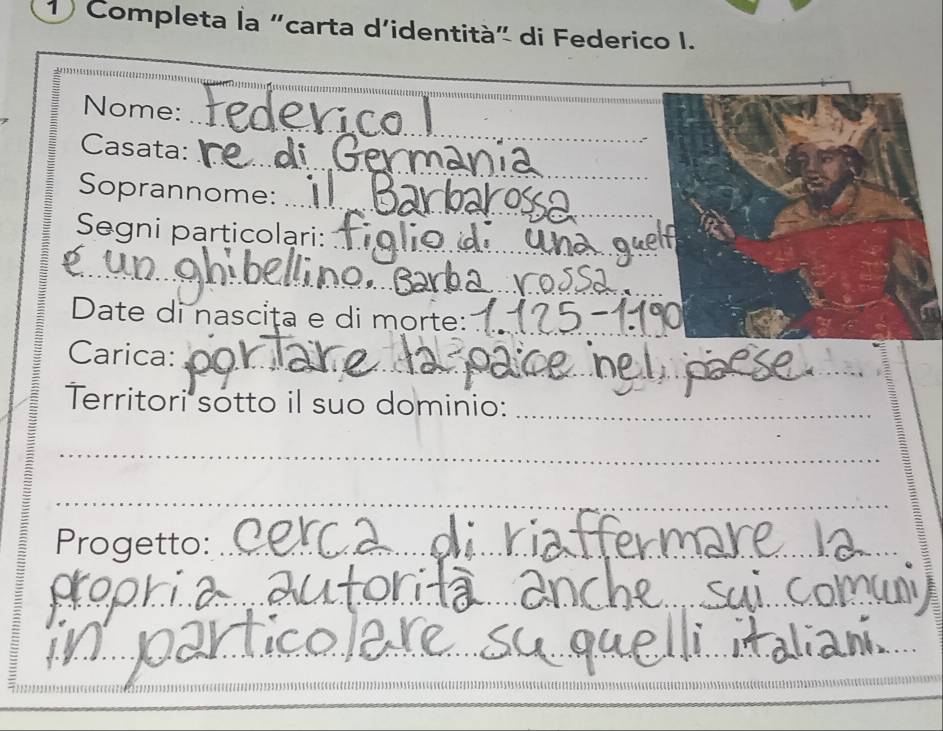 1 Completa la "carta d'identità" di Federico I.
Nome: Federico I
Casata: re di Germania
Soprannome: il Barbarossa
Segni particolari: figlio di una guelf
e un ghibellino. Barba rossa.
Date di nascita e di morte: 1.125-1.190
Carica: portare la paice nel paese.
Territori sotto il suo dominio:
Progetto: cerca di riaffermare la
propria autorità anche sui comuni
in particolare su quelli italiani.